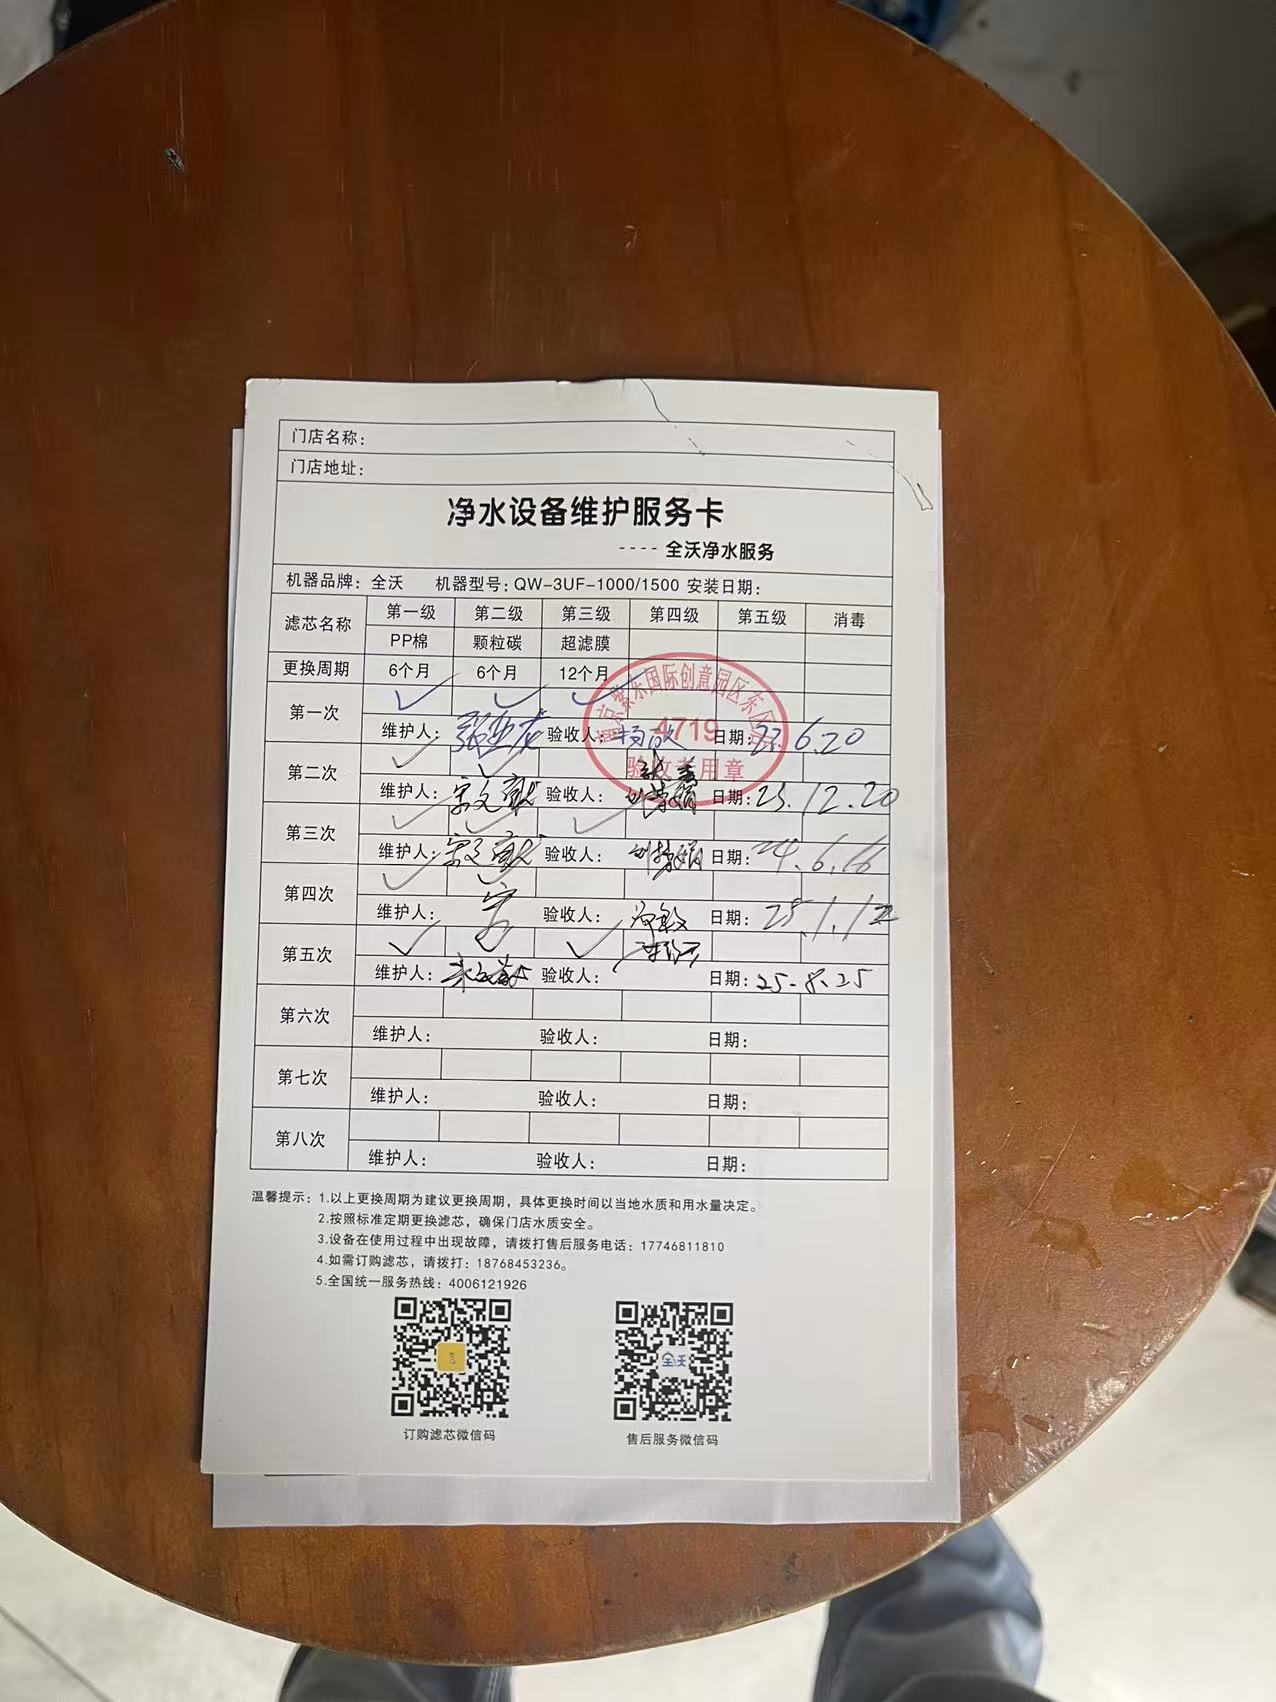 门店名称：
门店地址：
净水设备维护服务卡
---- 全沃净水服务
机器品牌：全沃 机器型号：QW-3UF-1000/1500 安装日期：
滤芯名称 第一级 第二级 第三级 第四级 第五级 消毒
PP棉 颗粒碳 超滤膜
更换周期 6个月 6个月 12个月
南京紫东国际创意园区东区店
4719
验收专用章
第一次 ✓ ✓ ✓
维护人：张亚龙 验收人：杨欣 日期：23.6.20
第二次 ✓ ✓
维护人：宋文献 验收人： 日期：23.12.20
第三次 ✓ ✓ ✓
维护人：宋文献 验收人： 日期：24.6.16
第四次 ✓ ✓
维护人：宋 验收人： 日期：25.1.12
第五次 ✓ ✓ ✓
维护人：宋文献 验收人： 日期：25.8.25
第六次
维护人： 验收人： 日期：
第七次
维护人： 验收人： 日期：
第八次
维护人： 验收人： 日期：
温馨提示：1.以上更换周期为建议更换周期，具体更换时间以当地水质和用水量决定。
2.按照标准定期更换滤芯，确保门店水质安全。
3.设备在使用过程中出现故障，请拨打售后服务电话：17746811810
4.如需订购滤芯，请拨打：18768453236。
5.全国统一服务热线：4006121926
全沃
订购滤芯微信码 售后服务微信码